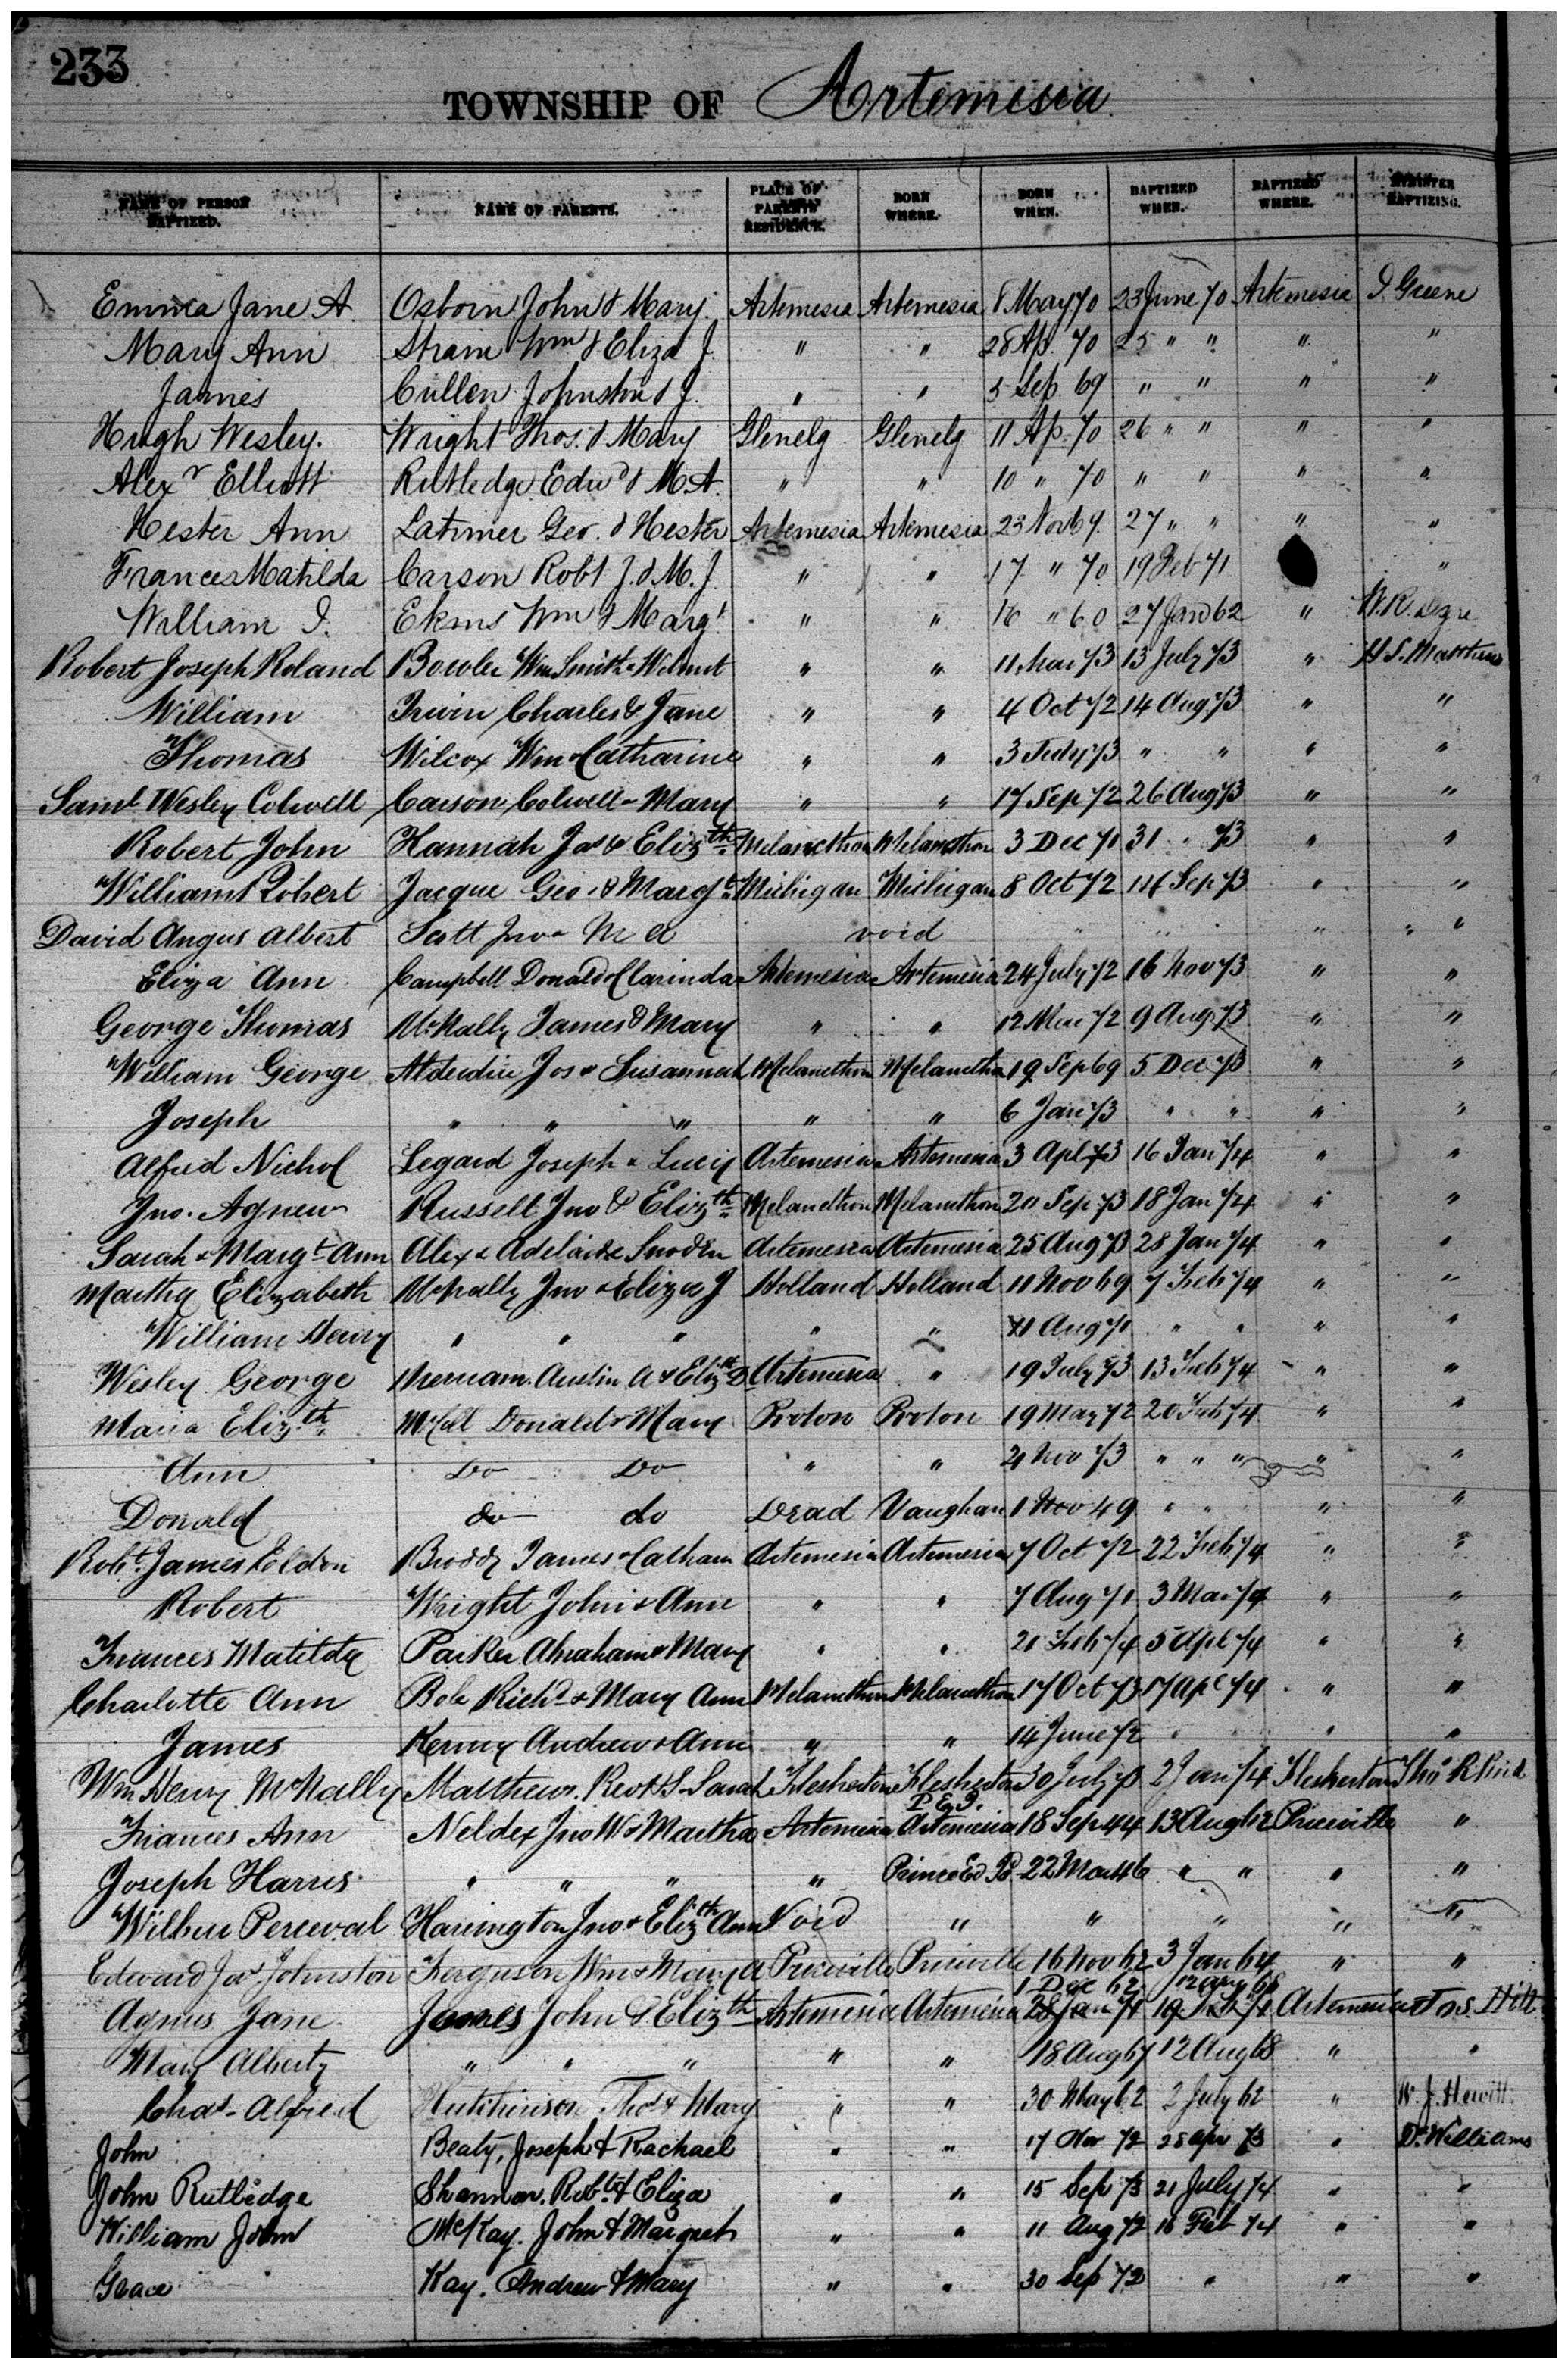 233
TOWNSHIP OF Artemesia
NAME OF PERSON BAPTIZED. NAME OF PARENTS. PLACE OF PARENTS' RESIDENCE. BORN WHERE. BORN WHEN. BAPTIZED WHEN. BAPTIZED WHERE. MINISTER BAPTIZING.
Emma Jane A. Osborn John & Mary. Artemesia Artemesia 8 May 70 23 June 70 Artemesia I. Greene
Mary Ann Strain Wm & Eliza J. " " 28 Ap. 70 25 " " " "
James Cullen Johnston & J. " " 5 Sep 69 " " " "
Hugh Wesley. Wright Thos. & Mary Glenelg Glenelg 11 Ap. 70 26 " " " "
Alexr Elliott Rutledge Edwd & M.A. " " 10 " 70 " " " "
Hester Ann Latimer Geo. & Hester Artemesia Artemesia 23 Nov 69. 27 " " " "
Frances Matilda Carson Robt J. & M. J. " " 17 " 70 19 Feb 71 "
William I. Ekins Wm & Margt " " 16 " 60 27 Jan 62 " W. R.
Robert Joseph Roland Bowler Wm Smith & " " 11 Mar 73 13 July 73 " H S. Matthews
William Irwin Charles & Jane " " 4 Oct 72 14 Aug 73 " "
Thomas Wilcox Wm & Catharine " " 3 July 73 " " " "
Saml Wesley Colwell Carson Colwell & Mary " " 17 Sep 72 26 Aug 73 " "
Robert John Hannah Jas & Elizth Melancthon Melancthon 3 Dec 71 31 " 73 " "
William Robert Jacque Geo. & Margt Michigan Michigan 8 Oct 72 14 Sep 73 " "
David Angus Albert Scott Jno & M A void " " " " "
Eliza Ann Campbell Donald & Clarinda Artemesia Artemesia 24 July 72 16 Nov 73 " "
George Thomas McNally James & Mary " " 12 Mar 72 9 Aug 73 " "
William George Jos & Susannah Melancthon Melancthon 19 Sep 69 5 Dec 73 " "
Joseph " " " " " 6 Jan 73 " " " "
Alfred Nichol Legard Joseph & Lucy Artemesia Artemesia 3 Apl 73 16 Jan 74 " "
Jno. Agnew Russell Jno & Elizth Melancthon Melancthon 20 Sep 73 18 Jan 74 " "
Sarah & Margt Ann Alex & Adelaide Artemesia Artemesia 25 Aug 73 28 Jan 74 " "
Martha Elizabeth McNally Jno & Eliza J Holland Holland 11 Nov 69 7 Feb 74 " "
William Henry " " " " " 11 Aug 71 " " " "
Wesley George Merriam Austin A & Elizth D Artemesia " 19 July 73 13 Feb 74 " "
Maria Elizth Donald & Mary Proton Proton 19 May 72 20 Feb 74 " "
Ann Do Do " " 21 Nov 73 " " " " "
Donald do do Vaughan 1 Nov 49 " " " "
Robt. James Eldon Broddy James & Artemesia Artemesia 7 Oct 72 22 Feb 74 " "
Robert Wright John & Ann " " 7 Aug 71 3 Mar 74 " "
Frances Matilda Parker Abraham & Mary " " 21 Feb 74 5 Apl 74 " "
Charlotte Ann Bole Richd & Mary Ann Melancthon Melancthon 17 Oct 73 17 Apl 74 " "
James Kenny Andrew & Ann " " 14 June 72 " " "
Wm Henry McNally Matthews. Rev H S & Sarah Flesherton Flesherton 30 July 73 2 Jan 74 Flesherton Thos R
P. E. I.
Frances Ann Jno W & Martha Artemesia Artemesia 18 Sep 44 13 Aug 62 Priceville "
Joseph Harris " " " " Prince Ed 22 Mar 46 " " " "
Wilbur Perceval Harrington Jno & Elizth Ann Void " " " " "
Edward Jas Johnston Ferguson Wm & Mary A Priceville Priceville 16 Nov 62 3 Jan 64 " "
1 Dec 62 68
Agnus Jane James John & Elizth Artemesia Artemesia 28 Jan 71 19 Feb 71 Artemesia Hill
Mary Alberty " " " " " 18 Aug 67 12 Aug 68 " "
Chas. Alfred Hutchinson Thos & Mary " " 30 May 62 2 July 62 " W. J. Hewitt.
John Beaty, Joseph & Rachael " " 17 Nov 72 28 Apr 73 " D. Williams
John Rutledge Shannon. Robt. & Eliza " " 15 Sep 73 21 July 74 " "
William John McKay. John & Margret " " 11 Aug 72 16 Feb 74 " "
Grace Kay. Andrew & Mary " " 30 Sep 72 " " "